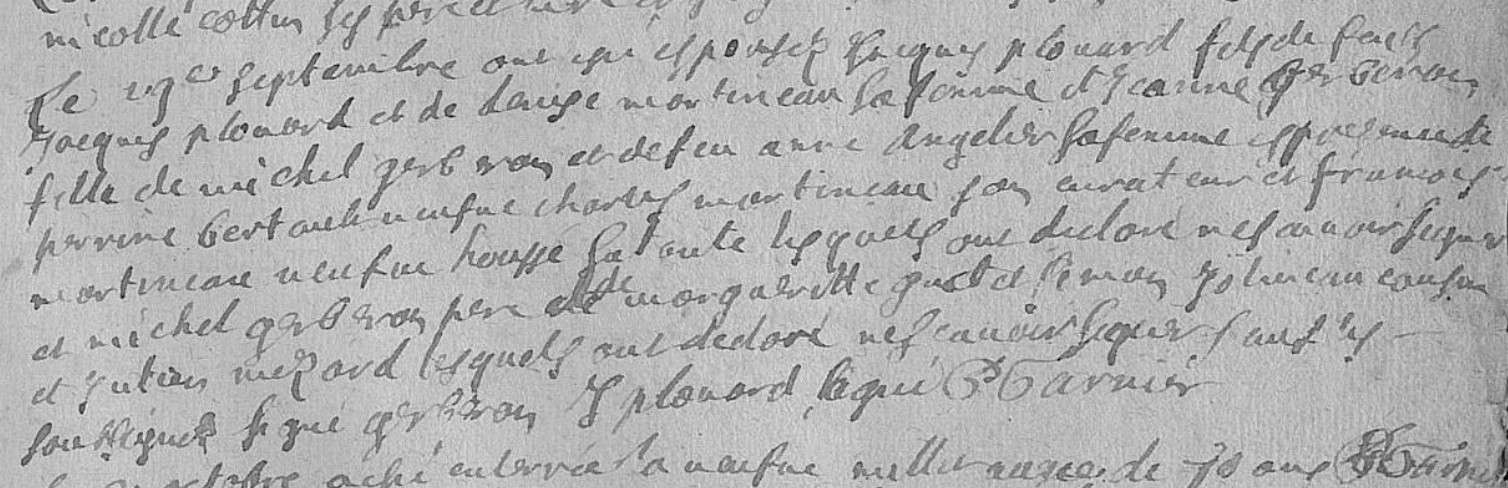 nicolle cottin ses pere et mere
Le 19er septembre ont esté espousez Jacques plouard fils de feu
Jacques plouard et de Louise martineau sa femme et Jeanne gerberon
fille de michel gerberon et de feu anne Angelier sa femme es presence de
perrine bertault veufve charles martineau son curateur et francois
martineau veufve housse sa tante lesquels ont declaré ne scavoir signer
et michel gerberon pere et de margueritte et simon Jolineau cousin
et Julien mezard lesquels ont declaré ne scavoir signer sauf les
soubsignes signé gerberon J plouard signé P Garnier
octobre a esté enterrée la veufve aagee de ans P Garnier